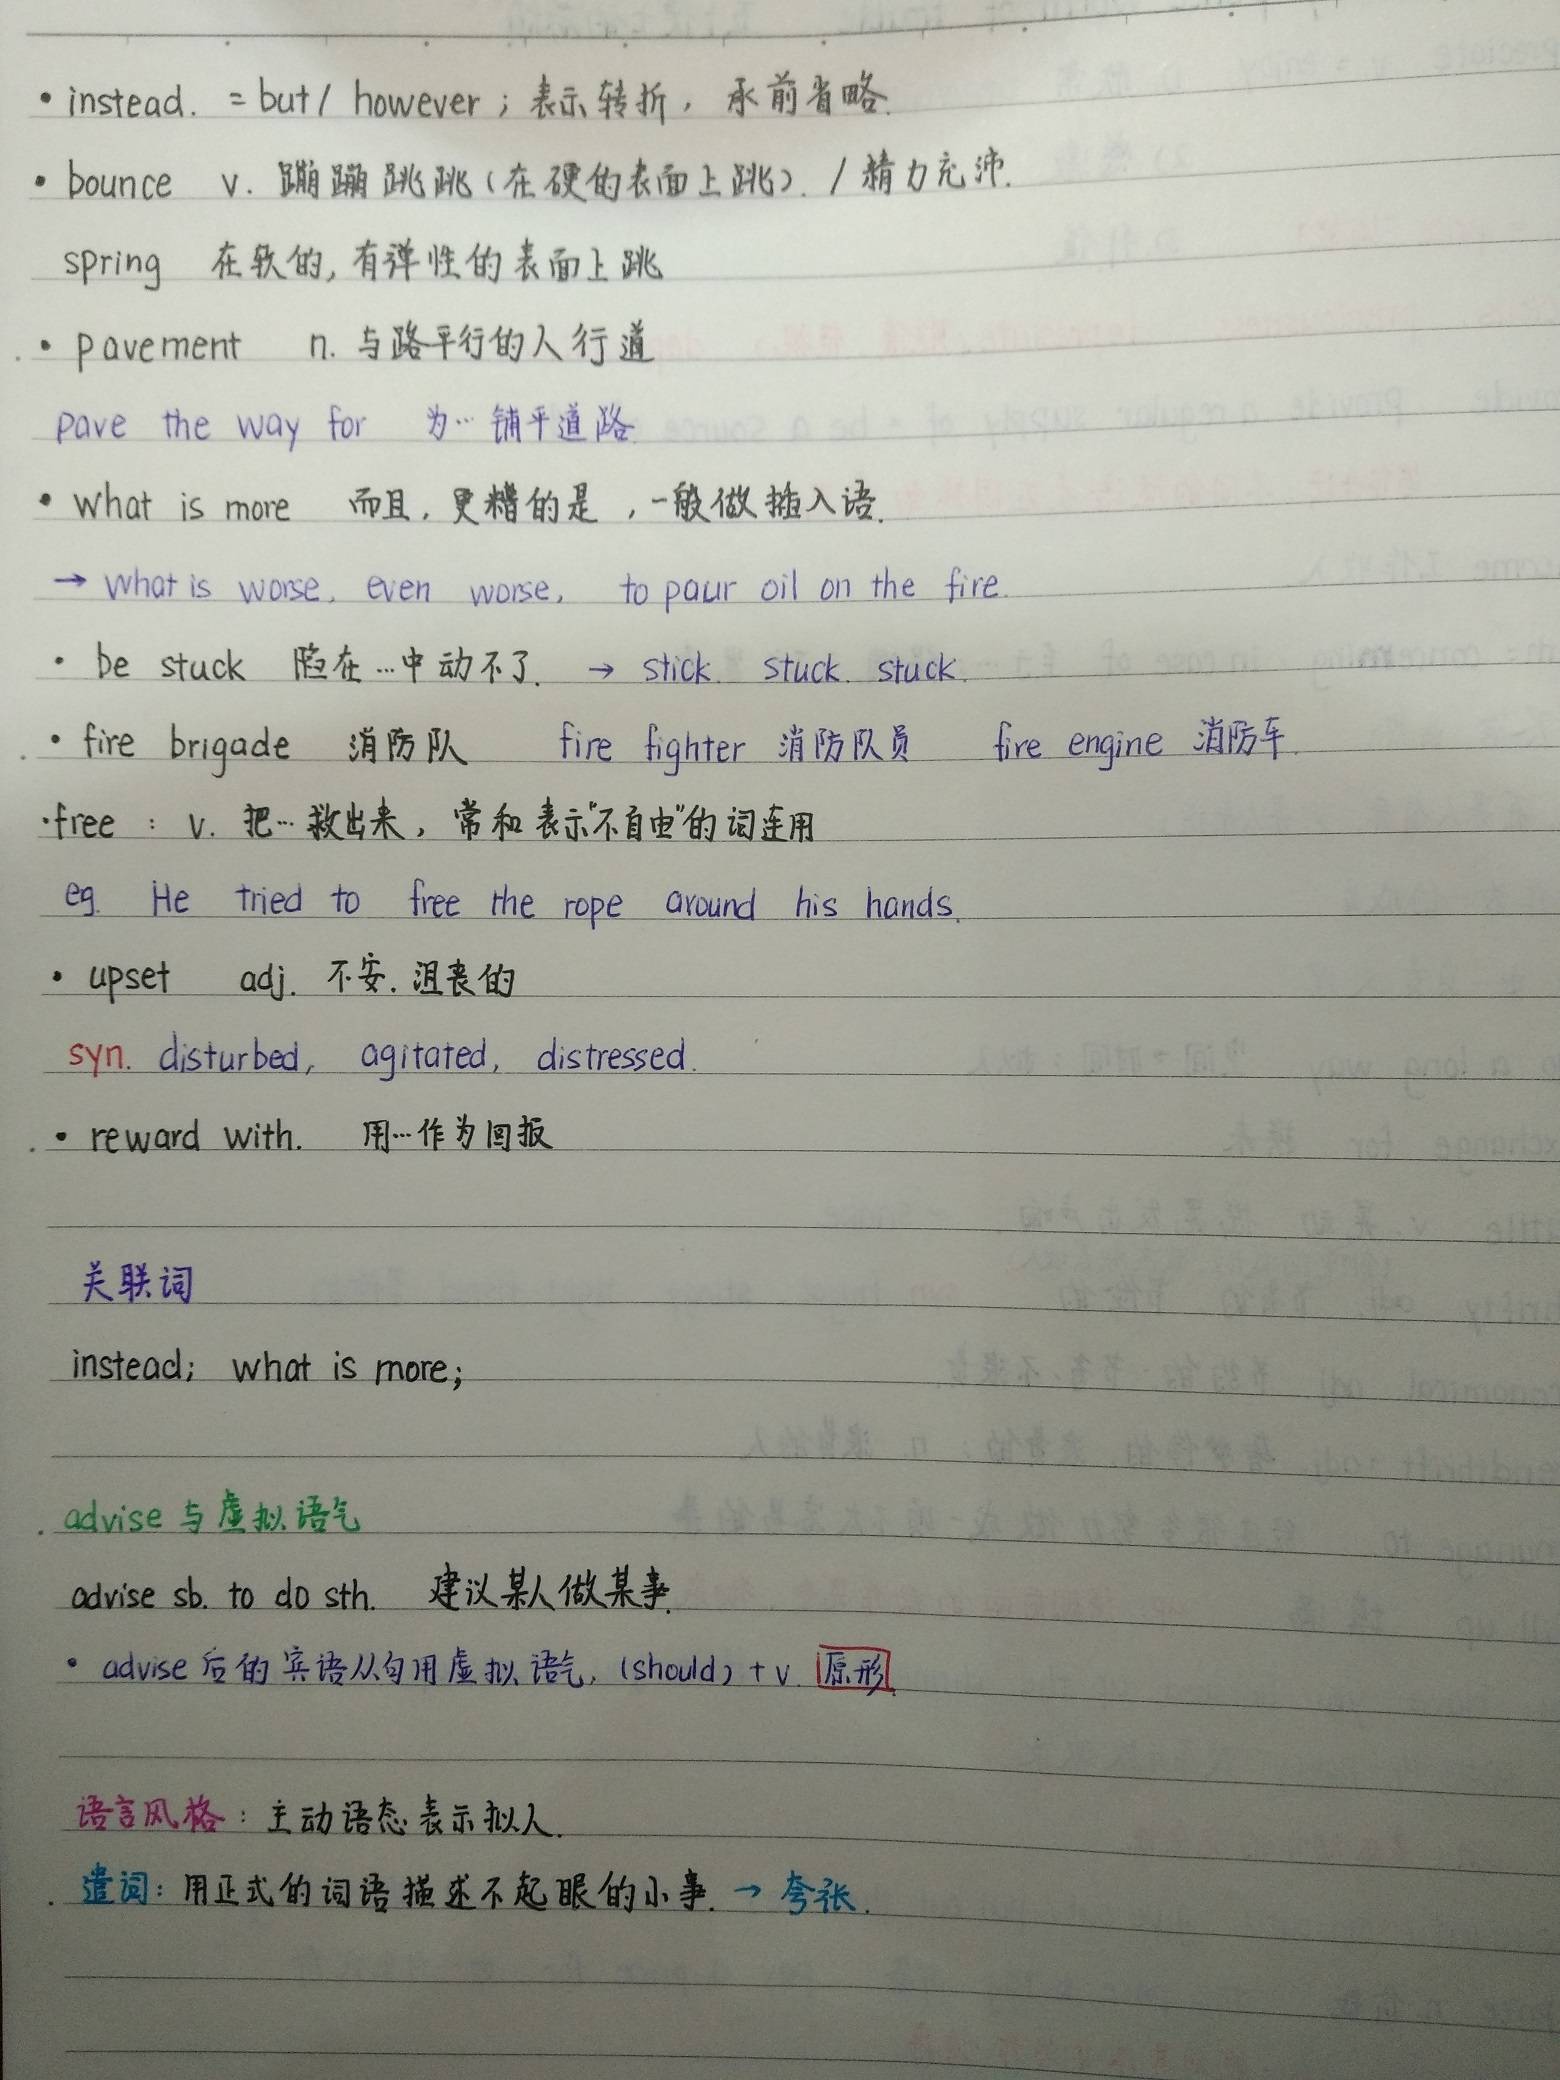 • instead. = but / however ; 表示转折, 承前省略.
• bounce v. 蹦蹦跳跳 (在硬的表面上跳). / 精力充沛.
spring 在软的, 有弹性的表面上跳
• pavement n. 与路平行的人行道
pave the way for 为…铺平道路.
• what is more 而且, 更糟的是, 一般做插入语.
→ what is worse, even worse, to pour oil on the fire.
• be stuck 陷在…中动不了. → stick. stuck. stuck.
• fire brigade 消防队 fire fighter 消防队员 fire engine 消防车.
·free : v. 把…救出来, 常和表示"不自由"的词连用
eg. He tried to free the rope around his hands.
• upset adj. 不安. 沮丧的
syn. disturbed, agitated, distressed.
• reward with. 用…作为回报
关联词
instead; what is more;
advise 与虚拟语气
advise sb. to do sth. 建议某人做某事.
• advise 后的宾语从句用虚拟语气, (should) + v. 原形.
语言风格: 主动语态表示拟人.
遣词: 用正式的词语描述不起眼的小事. → 夸张.